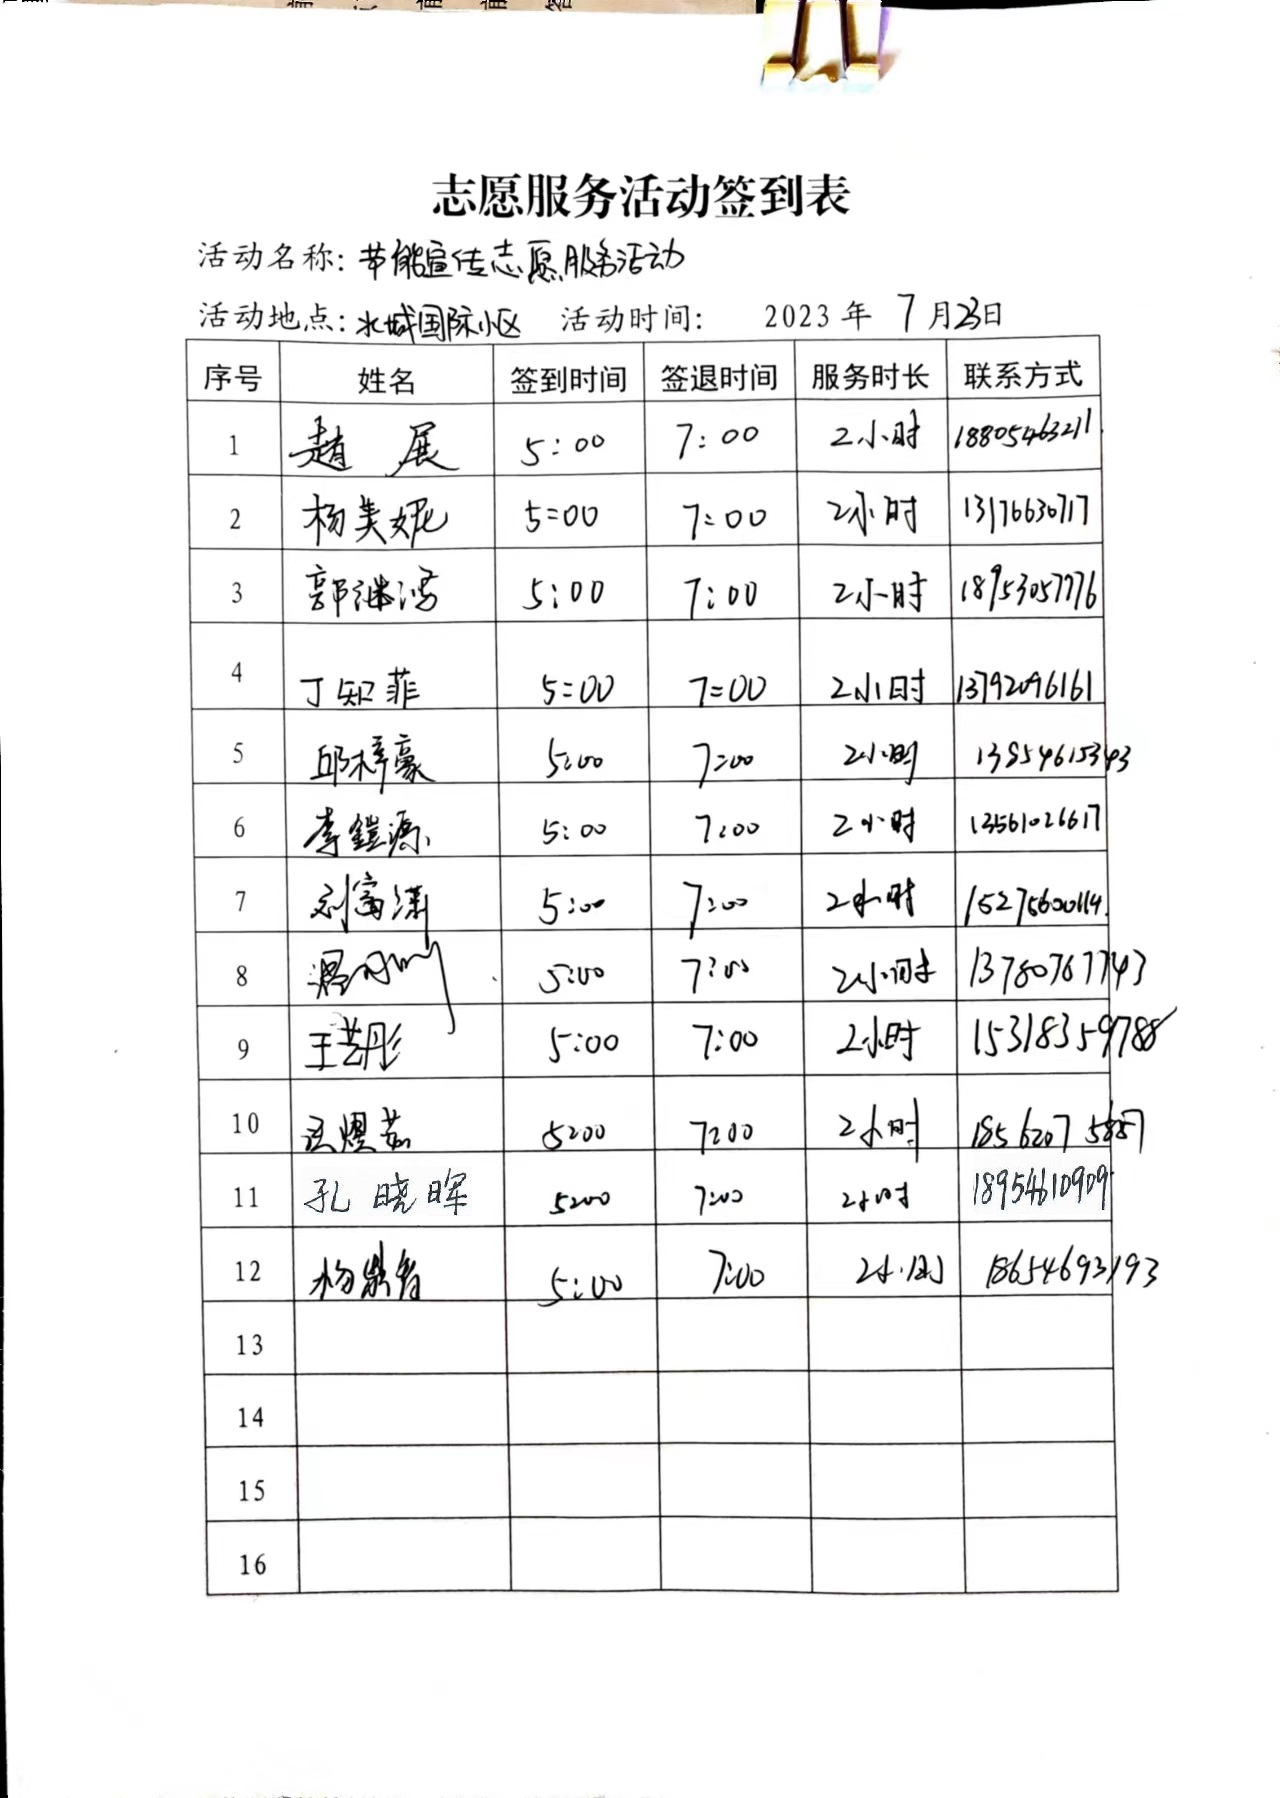 志愿服务活动签到表
活动名称：节能宣传志愿服务活动
活动地点：水城国际小区 活动时间： 2023 年 7 月 23 日
序号 姓名 签到时间 签退时间 服务时长 联系方式
1 赵展 5:00 7:00 2小时 18805463211
2 杨美妮 5:00 7:00 2小时 13176630717
3 郭继鸿 5:00 7:00 2小时 18953057776
4 丁知菲 5:00 7:00 2小时 13792096161
5 邱梓豪 5:00 7:00 2小时 13854615343
6 李鎧源 5:00 7:00 2小时 13561026617
7 刘富潇 5:00 7:00 2小时
8 5:00 7:00 2小时 13780767743
9 王艺彤 5:00 7:00 2小时 15318359788
10 5:00 7:00 2小时
11 孔晓晖 5:00 7:00 2小时 18954610909
12 5:00 7:00 2小时 18654693193
13
14
15
16